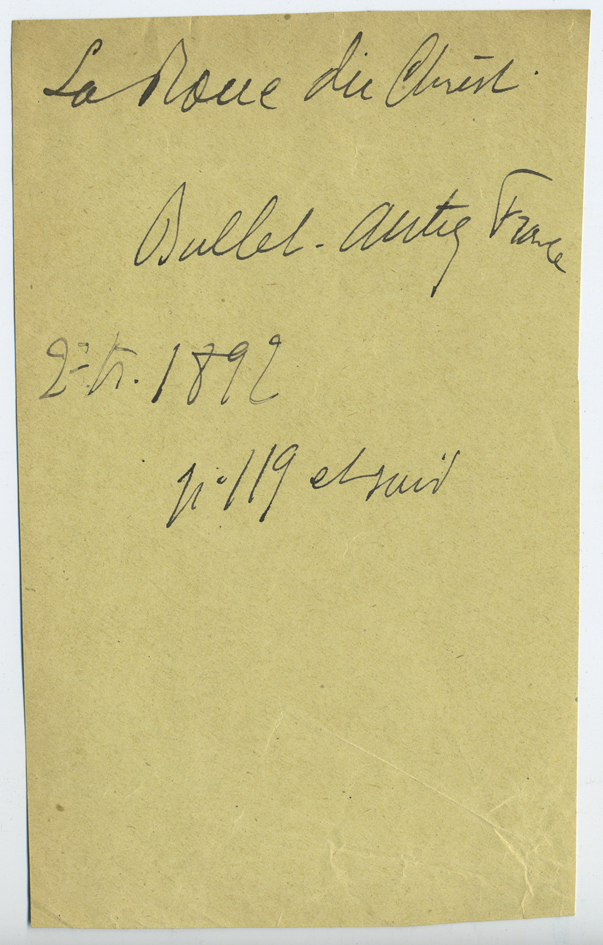 La Roue du Christ.
Bullet. Antiq France
2e tr. 1892
p. 119 et suiv